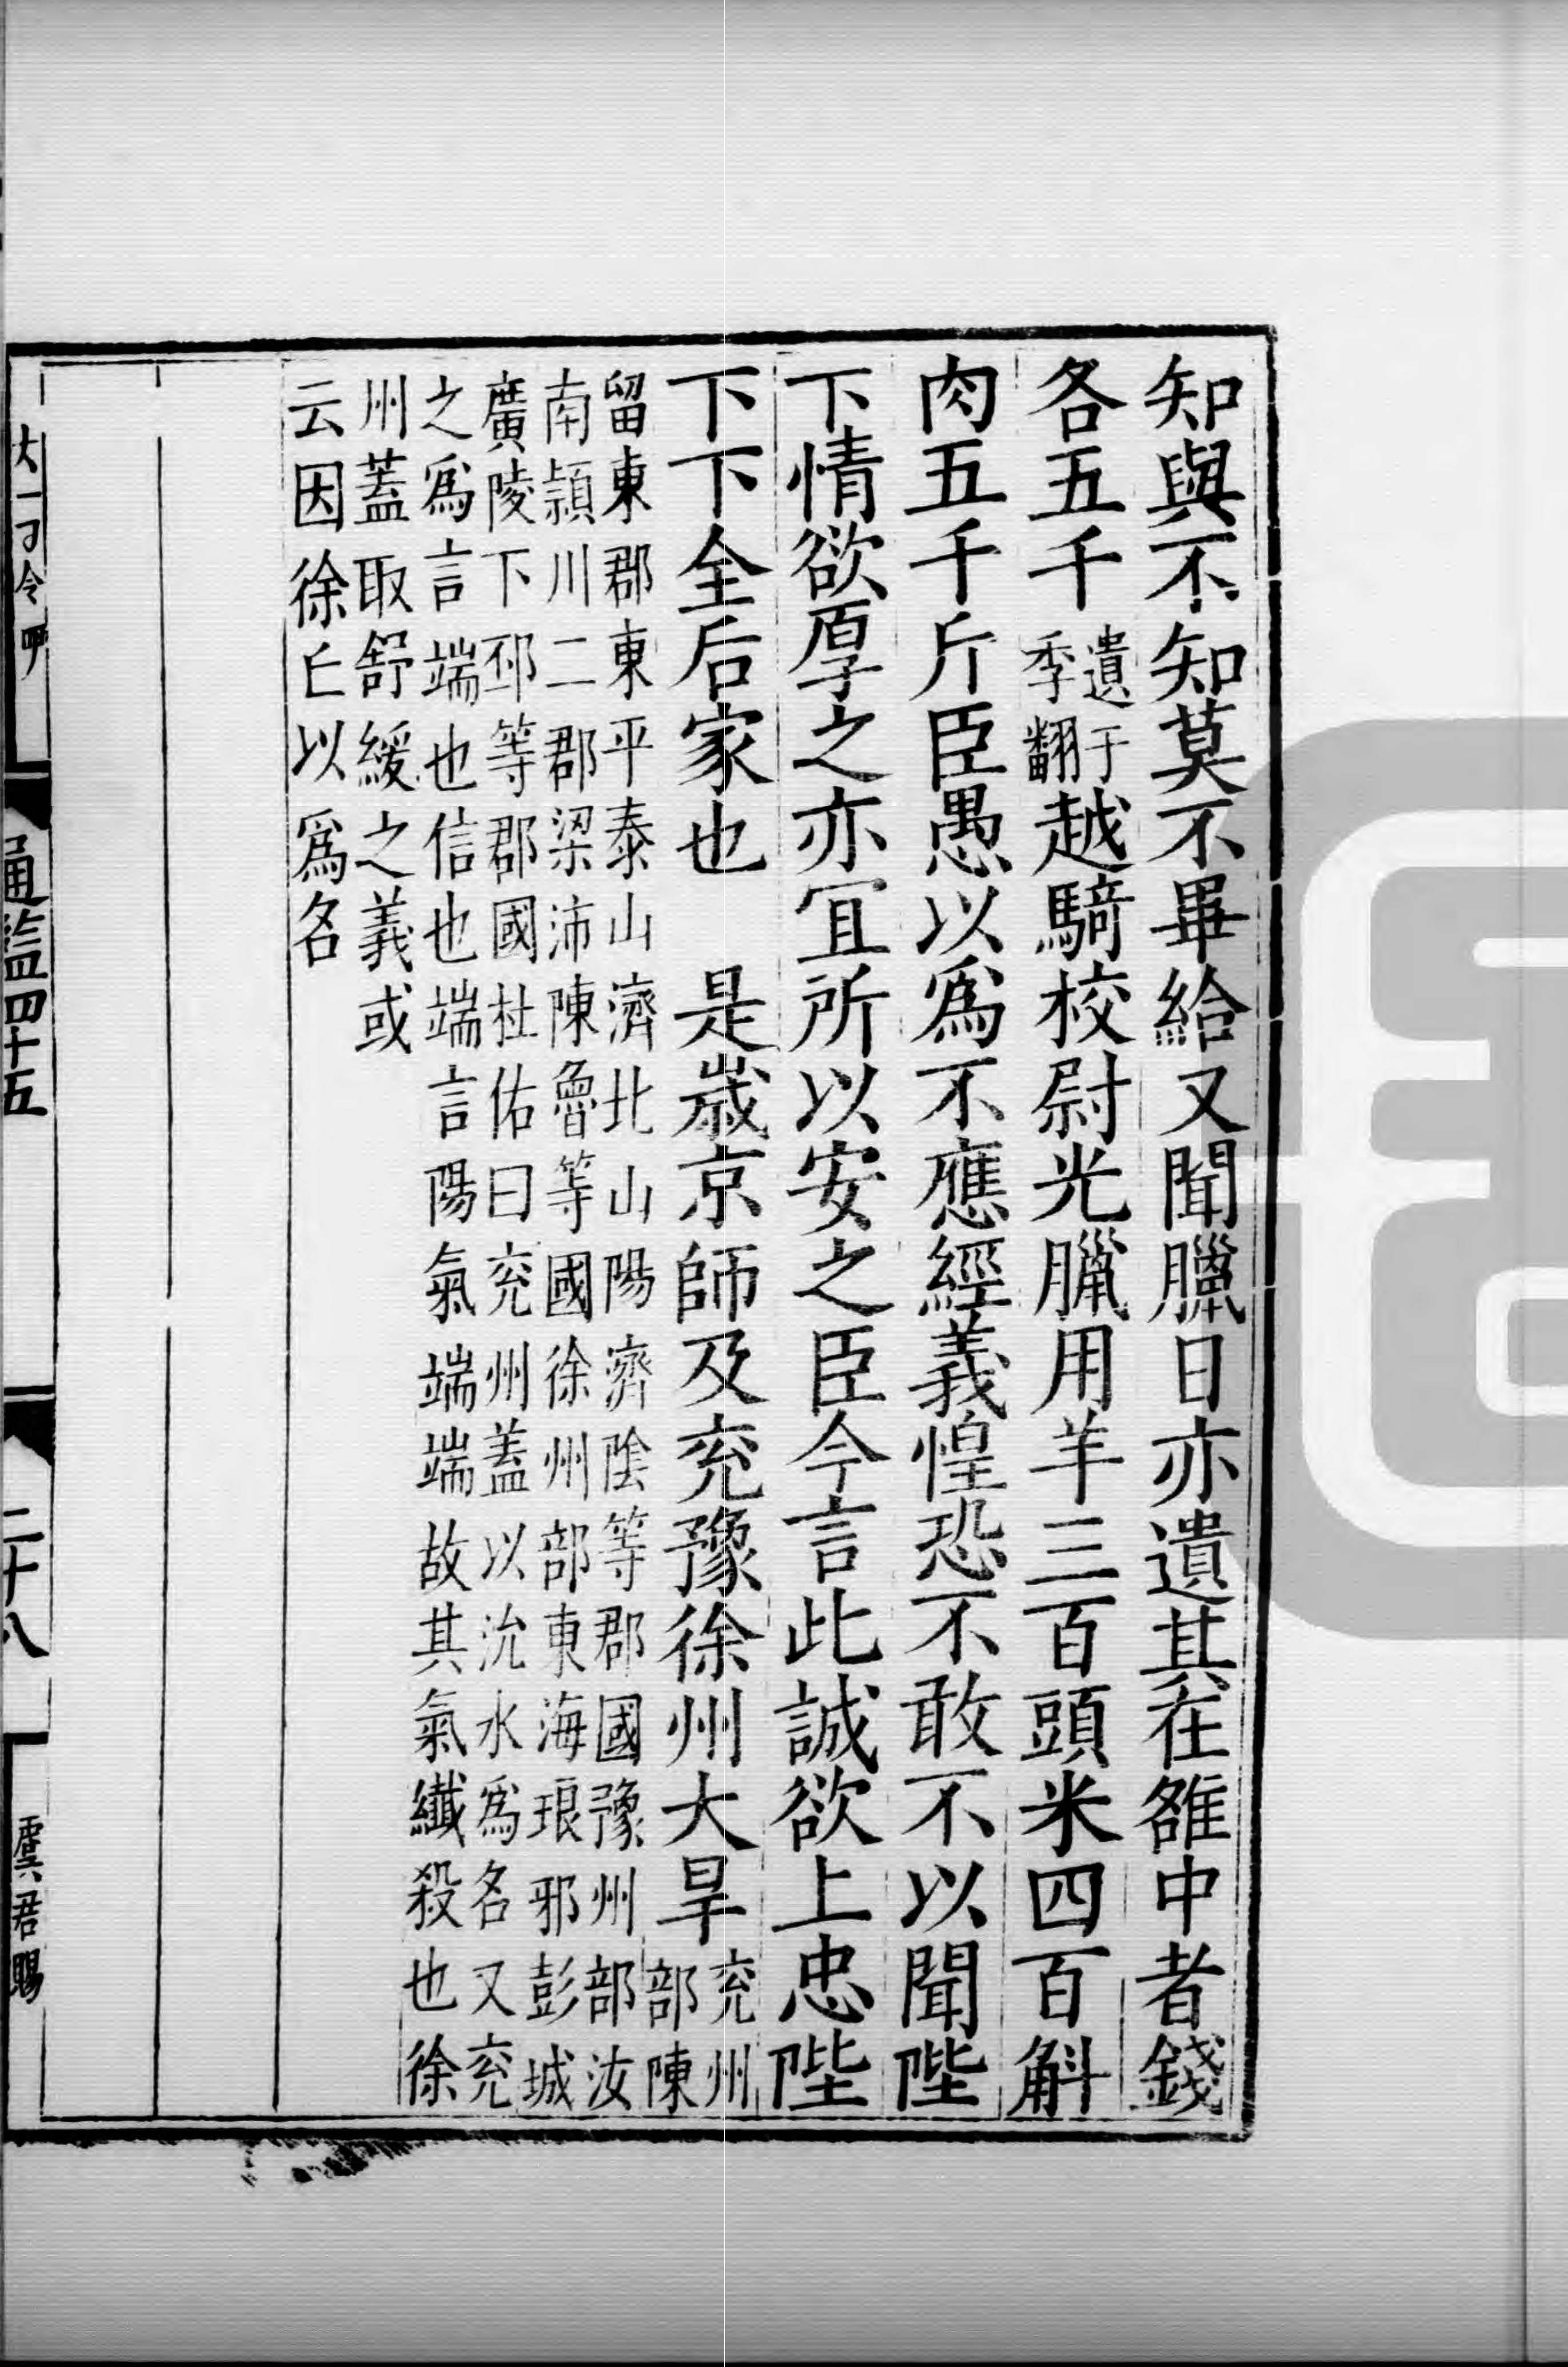 知與不知莫不畢給又聞臘日亦遺其在雒中者錢
各五千遺于季翻越騎校尉光臘用羊三百頭米四百斛
肉五千斤臣愚以爲不應經義惶恐不敢不以聞陛
下情欲厚之亦宜所以安之臣今言此誠欲上忠陛
下下全后家也　是歲京師及兖豫徐州大旱兖州部陳
留東郡東平泰山濟北山陽濟隂等郡國豫州部汝
南潁川二郡梁沛陳魯等國徐州部東海琅邪彭城
廣陵下邳等郡國杜佑曰兖州蓋以沇水爲名又兖
之爲言端也信也端言陽氣端端故其氣纎殺也徐
州蓋取舒緩之義或
云因徐亡以爲名
通監四十五
二十八
虞君賜